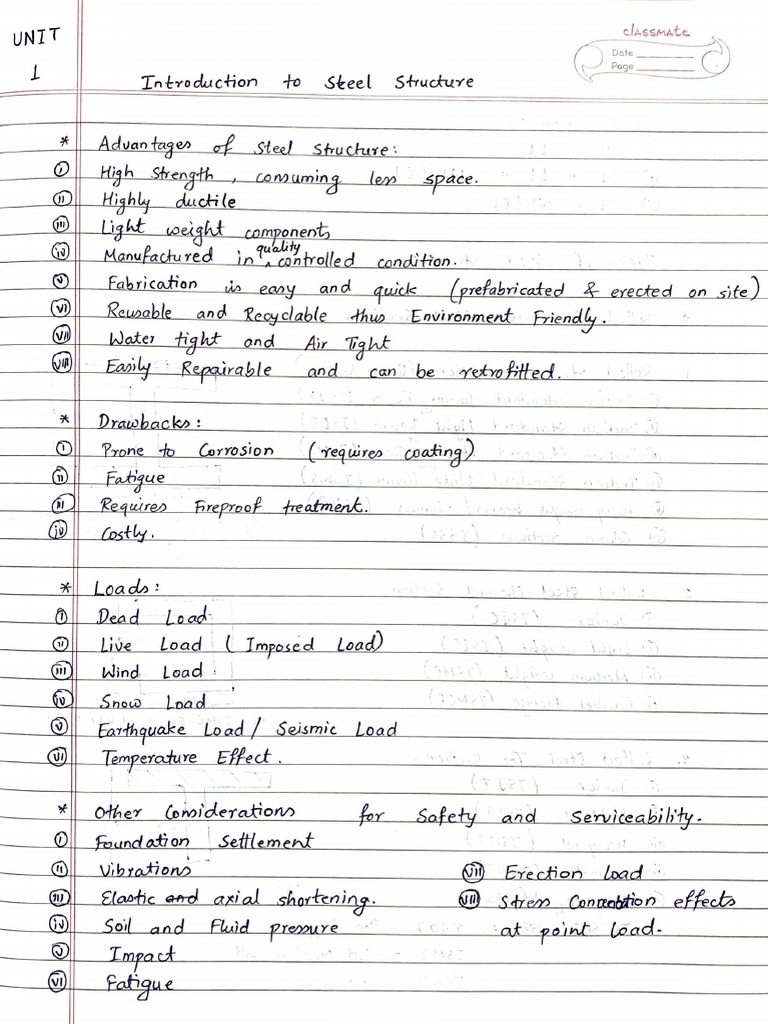 UNIT
1
classmate
Date
Page
Introduction to Steel Structure
* Advantages of Steel Structure:
(i) High Strength, consuming less space.
(ii) Highly ductile
(iii) Light weight components
(iv) Manufactured in quality controlled condition.
(v) Fabrication is easy and quick (prefabricated & erected on site)
(vi) Reusable and Recyclable thus Environment Friendly.
(vii) Water tight and Air Tight
(viii) Easily Repairable and can be retrofitted.
* Drawbacks:
(i) Prone to Corrosion (requires coating)
(ii) Fatigue
(iii) Requires Fireproof treatment.
(iv) Costly.
* Loads:
(i) Dead Load
(ii) Live Load (Imposed Load)
(iii) Wind Load
(iv) Snow Load
(v) Earthquake Load/ Seismic Load
(vi) Temperature Effect.
* Other Considerations for Safety and Serviceability.
(i) Foundation Settlement
(ii) Vibrations
(iii) Elastic and axial shortening.
(iv) Soil and Fluid pressure
(v) Impact
(vi) Fatigue
(vii) Erection Load
(viii) Stress effects
at point load.